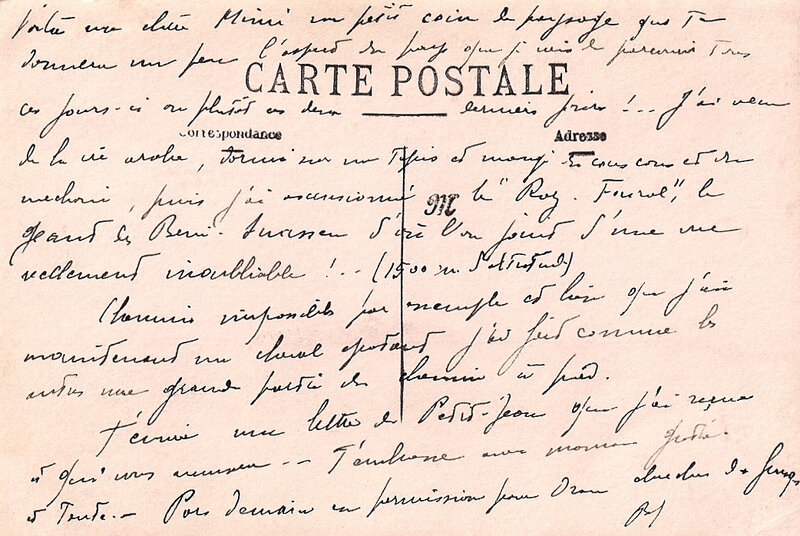 Voilà ma chère Mimi un petit coin de paysage qui te
donnera un peu l'aspect du pays que je viens de parcourir tous
CARTE POSTALE
ces jours-ci ou plutôt ces deux derniers jours !.. J'ai vécu
Correspondance
Adresse
de la vie arabe, dormi sur un tapis et mangé du couscous et du
M
mechoui, puis j'ai excursionné le "Ray-Fourol", le
géant des Beni-Snassen d'où l'on jouit d'une vue
réellement inoubliable !.. (1500 m. d'altitude)
Chemins impossibles par exemple et bien que j'aie
maintenant un cheval épatant j'ai fait comme les
autres une grande partie du chemin à pied.
une lettre de Petit-Jean que j'ai reçue
et qui vous amusera -- T'embrasse avec maman
et Tante.- Pars demain en permission pour Oran chercher